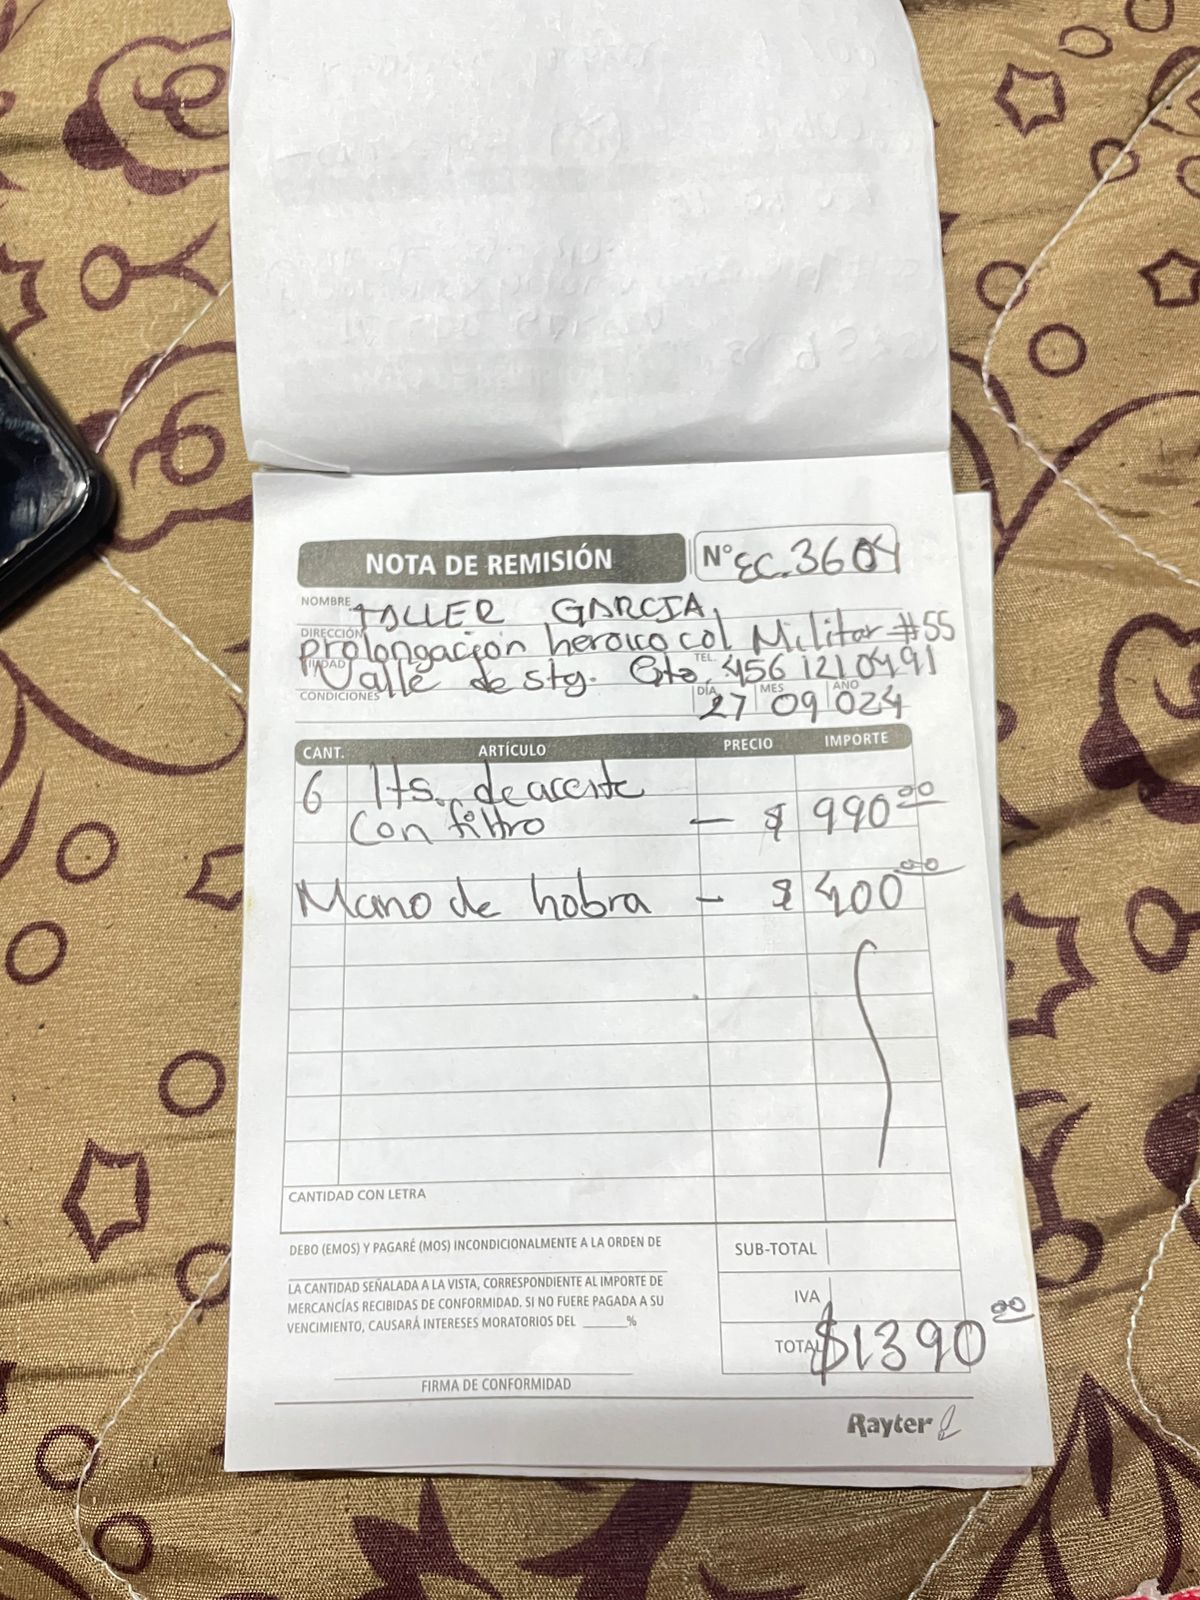 NOTA DE REMISIÓN
N° EC.3604
NOMBRE TALLER GARCIA
DIRECCIÓN prolongación heroico col Militar #55
CIUDAD Valle de stg. Gto. TEL. 456 1210491
CONDICIONES
DÍA MES AÑO
27 09 024
CANT. ARTÍCULO PRECIO IMPORTE
6 lts. de aceite
con filtro — $ 990.00
Mano de hobra — $ 400.00
CANTIDAD CON LETRA
DEBO (EMOS) Y PAGARÉ (MOS) INCONDICIONALMENTE A LA ORDEN DE
LA CANTIDAD SEÑALADA A LA VISTA, CORRESPONDIENTE AL IMPORTE DE
MERCANCÍAS RECIBIDAS DE CONFORMIDAD. SI NO FUERE PAGADA A SU
VENCIMIENTO, CAUSARÁ INTERESES MORATORIOS DEL ______%
SUB-TOTAL
IVA
TOTAL $1390.00
FIRMA DE CONFORMIDAD
Rayter